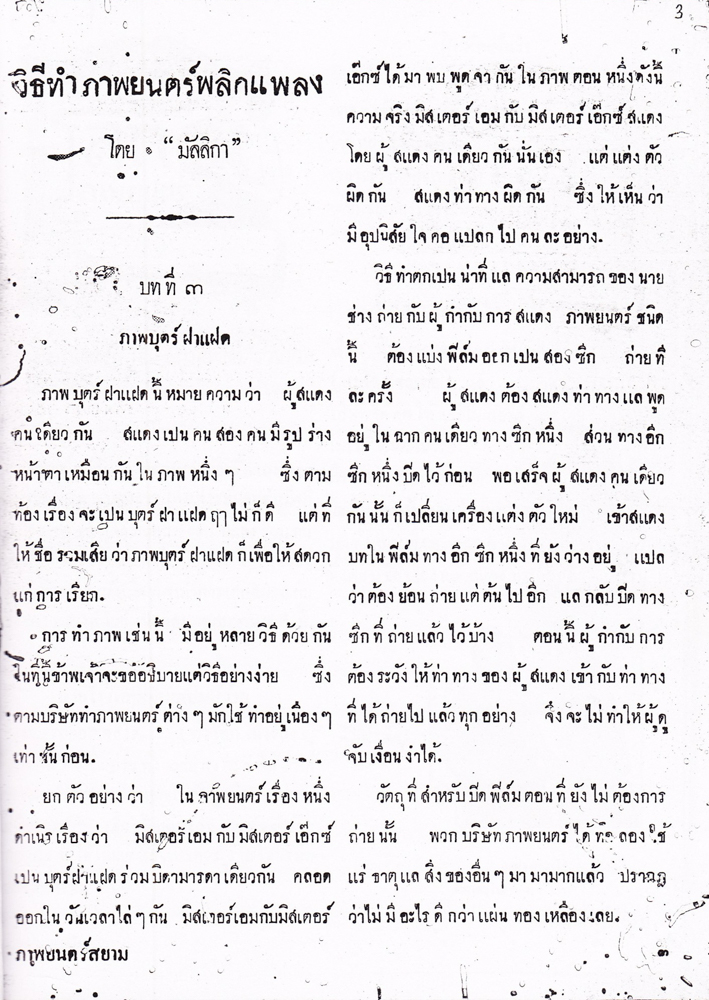 3
วิธีทำภาพยนตร์พลิกแพลง
โดย "มัลลิกา"
บทที่ ๓
ภาพบุตร์ฝาแฝด
ภาพบุตร์ฝาแฝดนี้หมายความว่า ผู้สแดง
คนเดียวกัน สแดงเปนคนสองคนมีรูปร่าง
หน้าตาเหมือนกันในภาพหนึ่ง ๆ ซึ่งตาม
ท้องเรื่องจะเปนบุตร์ฝาแฝดฤๅไม่ก็ดี แต่ที่
ให้ชื่อรวมเสียว่าภาพบุตร์ฝาแฝดก็เพื่อให้สดวก
แก่การเรียก.
การทำภาพเช่นนี้ มีอยู่หลายวิธีด้วยกัน
ในที่นี้ข้าพเจ้าจะขออธิบายแต่วิธีอย่างง่าย ซึ่ง
ตามบริษัททำภาพยนตร์ต่าง ๆ มักใช้ทำอยู่เนือง ๆ
เท่านั้นก่อน.
ยกตัวอย่างว่า ในภาพยนตร์เรื่องหนึ่ง
ดำเนิรเรื่องว่า มิสเตอร์เอมกับมิสเตอร์เอ๊กซ์
เปนบุตร์ฝาแฝดร่วมบิดามารดาเดียวกัน คลอด
ออกในวันเวลาไล่ ๆ กัน มิสเตอร์เอมกับมิสเตอร์
ภาพยนตร์สยาม
เอ๊กซ์ได้มาพบพูดจากันในภาพตอนหนึ่งดังนี้
ความจริงมิสเตอร์เอมกับมิสเตอร์เอ๊กซ์สแดง
โดยผู้สแดงคนเดียวกันนั่นเอง แต่แต่งตัว
ผิดกัน สแดงท่าทางผิดกัน ซึ่งให้เห็นว่า
มีอุปนิสัยใจคอแปลกไปคนละอย่าง.
วิธีทำตกเปนน่าที่แลความสามารถของนาย
ช่างถ่ายกับผู้กำกับการสแดง ภาพยนตร์ชนิด
นี้ ต้องแบ่งฟีล์มออกเปนสองซีก ถ่ายที
ละครั้ง ผู้สแดงต้องสแดงท่าทางแลพูด
อยู่ในฉากคนเดียวทางซีกหนึ่ง ส่วนทางอีก
ซีกหนึ่งปีดไว้ก่อน พอเสร็จผู้สแดงคนเดียว
กันนั้นก็เปลี่ยนเครื่องแต่งตัวใหม่ เข้าสแดง
บทในฟีล์มทางอีกซีกหนึ่งที่ยังว่างอยู่ แปล
ว่าต้องย้อนถ่ายแต่ต้นไปอีก แลกลับปีดทาง
ซีกที่ถ่ายแล้วไว้บ้าง ตอนนี้ผู้กำกับการ
ต้องระวังให้ท่าทางของผู้สแดงเข้ากับท่าทาง
ที่ได้ถ่ายไปแล้วทุกอย่าง จึงจะไม่ทำให้ผู้ดู
จับเงื่อนงำได้.
วัตถุที่สำหรับปีดฟีล์มตอนที่ยังไม่ต้องการ
ถ่ายนั้น พวกบริษัทภาพยนตร์ได้ทดลองใช้
แร่ธาตุแลสิ่งของอื่น ๆ มามากแล้ว ปรากฎ
ว่าไม่มีอะไรดีกว่าแผ่นทองเหลืองเลย.
๓